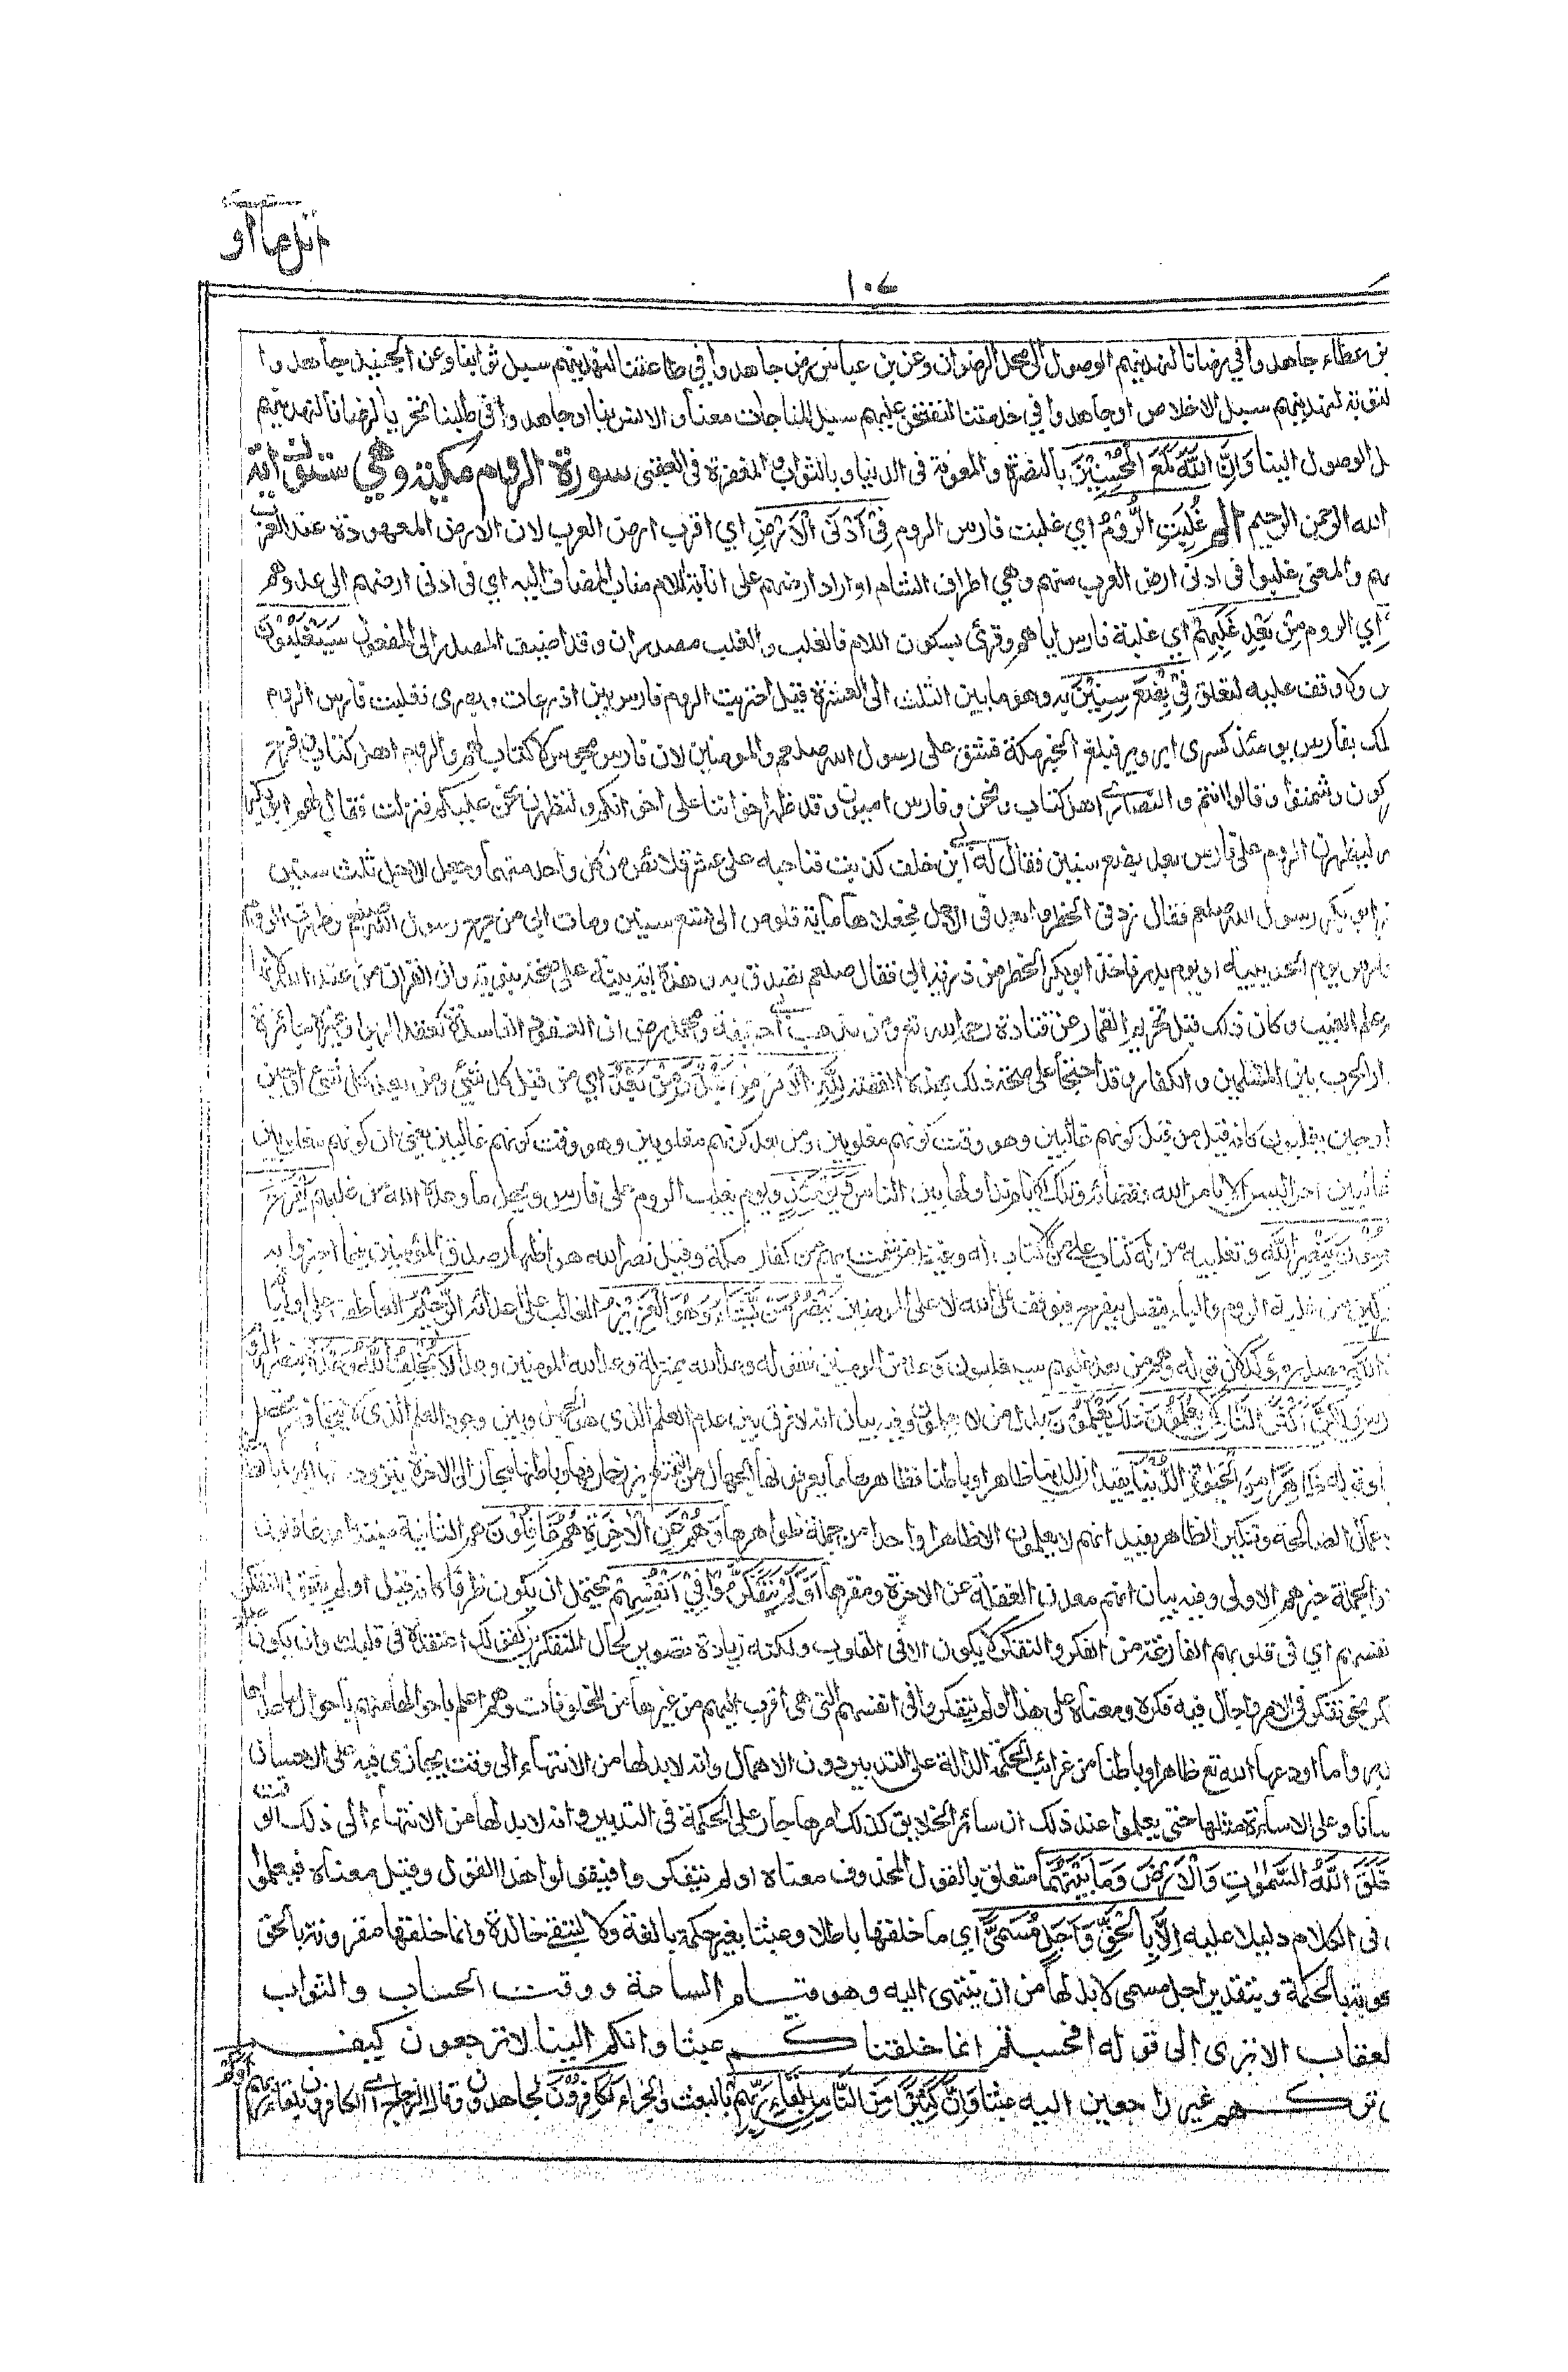 اتل ما او
١٠٧
بن عطاء جاهدوا في رضانا لنهدينهم الوصول الى محل الرضوان وعن بن عباس رض جاهدوا في طاعتنا لنهدينهم سبيل ثوابنا وعن الجنيد جاهدوا
لتوبة لنهدينهم سبيل الاخلاص او جاهدوا في خدمتنا لنفتحن عليهم سبيل المناجات معنا والانس بنا او جاهدوا في طلبنا تحريا لرضانا لنهدينهم
ل الوصول الينا وَاِنَّ اللّٰهَ لَمَعَ الْمُحْسِنِيْنَ بالنصرة والمعونة في الدنيا وبالثواب والمغفرة في العقبى سورة الروم مكية وهي ستون اية
الله الرحمن الرحيم الم غُلِبَتِ الرُّوْمُ اي غلبت فارس الروم فِيْ اَدْنَى الْاَرْضِ اي اقرب ارض العرب لان الارض المعهودة عند العرب
هم والمعنى غلبوا في ادنى ارض العرب منهم وهي اطراف الشام او اراد ارضهم على انابة اللام مناب المضاف اليه اي في ادنى ارضهم الى عدوهم
اي الروم مِّنْ بَعْدِ غَلَبِهِمْ اي غلبة فارس اياهم وقرئ بسكون اللام فالغلب والغلب مصدران وقد اضيف المصدر الى المفعول سَيَغْلِبُوْنَ
س ولا وقف عليه لتعلق فِيْ بِضْعِ سِنِيْنَ به وهو ما بين الثلث الى العشرة قيل احتربت الروم فارس بين اذرعات وبصرى فغلبت فارس الروم
لك بفارس يومئذ كسرى ابرويز فبلغ الخبر مكة فشق على رسول الله صلعم والمومنين لان فارس مجوس لا كتاب لهم والروم اهل كتاب وفرح
كون وشمتوا وقالوا انتم والنصارى اهل كتاب ونحن وفارس اميون وقد ظهر اخواننا على اخوانكم ولنظهرن نحن عليكم فنزلت فقال لهم ابو بكر
ليظهرن الروم على فارس بعد بضع سنين فقال له ابي بن خلف كذبت فناحبه على عشر قلائص من كل واحد منهما وجعل الاجل ثلث سنين
ابو بكر رسول الله صلعم فقال زد في الخطر وابعد في الاجل فجعلاها مائة قلوص الى تسع سنين ومات ابي من جرح رسول الله صلعم وظهرت الروم
فارس يوم الحديبية او يوم بدر فاخذ ابو بكر الخطر من ذرية ابي فقال صلعم تصدق به وهذه اية بينة على صحة نبوته وان القران من عند الله لانها
علم الغيب وكان ذلك قبل تحريم القمار عن قتادة رحمه الله تع ومن مذهب ابي حنيفة ومحمد رض ان العقود الفاسدة كعقد الربوا وغيرها جائزة
دار الحرب بين المسلمين والكفار وقد احتجا على صحة ذلك بهذه القصة لِلّٰهِ الْاَمْرُ مِنْ قَبْلُ وَمِنْ بَعْدُ اي من قبل كل شيء ومن بعد كل شيء او حين
او حين يغلبون كانه قيل من قبل كونهم غالبين وهو وقت كونهم مغلوبين ومن بعد كونهم مغلوبين وهو وقت كونهم غالبين يعني ان كونهم مغلوبين
غالبين اخرا ليس الا بامر الله وقضائه وتلك الايام نداولها بين الناس وَيَوْمَئِذٍ ويوم يغلب الروم على فارس ويحل ما وعده الله من غلبهم يَّفْرَحُ
مِنُوْنَ بِنَصْرِ اللّٰهِ وتغليبه من له كتاب على من لا كتاب له وغيظ من شمت بهم من كفار مكة وقيل نصر الله هو اظهار صدق المؤمنين فيما اخبروا به
ركين من غلبة الروم والباء يتصل بيفرح فيوقف على الله لا على المومنين يَنْصُرُ مَنْ يَّشَاءُ وَهُوَ الْعَزِيْزُ الغالب على اعدائه الرَّحِيْمُ العاطف على اوليائه
اللّٰهِ مصدر مؤكد لان قوله وهم من بعد غلبهم سيغلبون وعد من الله للمومنين فقوله وعد الله بمنزلة وعد الله المومنين وعدا لَا يُخْلِفُ اللّٰهُ وَعْدَهٗ بنصر الروم
رس وَلٰكِنَّ اَكْثَرَ النَّاسِ لَا يَعْلَمُوْنَ ذلك يَعْلَمُوْنَ بدل من لا يعلمون وفيه بيان انه لا فرق بين عدم العلم الذي هو الجهل وبين وجود العلم الذي لا يتجاوز تحصيل
وقوله ظَاهِرًا مِّنَ الْحَيٰوةِ الدُّنْيَا يفيد ان للدنيا ظاهرا وباطنا فظاهرها ما يعرفه الجهال من التمتع بزخارفها وباطنها مجاز الى الاخرة يتزود منها اليها بالطاعة
عمال الصالحة وتنكير الظاهر يفيد انهم لا يعلمون الا ظاهرا واحدا من جملة ظواهرها وَهُمْ عَنِ الْاٰخِرَةِ هُمْ غَافِلُوْنَ هم الثانية مبتدا وغافلون
والجملة خبر هم الاولى وفيه بيان انهم معدن الغفلة عن الاخرة ومقرها اَوَلَمْ يَتَفَكَّرُوْا فِيْ اَنْفُسِهِمْ يحتمل ان يكون ظرفا كانه قيل اولم يحدثوا التفكر
نفسهم اي في قلوبهم الفارغة من الفكر والتفكر لا يكون الا في القلوب ولكنه زيادة تصوير لحال المتفكرين كقولك اعتقده في قلبك وان يكون
كر نحو تفكر في الامر واجال فيه فكره ومعناه على هذا اولم يتفكروا في انفسهم التي هي اقرب اليهم من غيرها من المخلوقات وهم اعلم باحوالها منهم باحوال ما عداها
بروا ما اودعها الله تع ظاهرا وباطنا من غرائب الحكمة الدالة على التدبير دون الاهمال وانه لا بد لها من الانتهاء الى وقت يجازى فيه على الاحسان
سانا وعلى الاساءة مثلها حتى يعلموا عند ذلك ان سائر الخلايق كذلك امرها جار على الحكمة في التدبير وانه لا بد لها من الانتهاء الى ذلك الوقت
خَلَقَ اللّٰهُ السَّمٰوٰتِ وَالْاَرْضَ وَمَا بَيْنَهُمَا متعلق بالقول المحذوف معناه اولم يتفكروا فيقولوا هذا القول وقيل معناه فيعلموا
في الكلام دليلا عليه اِلَّا بِالْحَقِّ وَاَجَلٍ مُّسَمًّى اي ما خلقها باطلا وعبثا بغير حكمة بالغة ولا لتبقى خالدة وانما خلقها مقرونة بالحق
حوبة بالحكمة وبتقدير اجل مسمى لا بد لها من ان تنتهي اليه وهو قيام الساعة ووقت الحساب والثواب
لعقاب الا ترى الى قوله افحسبتم انما خلقناكم عبثا وانكم الينا لا ترجعون كيف
تركهم غير راجعين اليه عبثا وَاِنَّ كَثِيْرًا مِّنَ النَّاسِ بِلِقَاءِ رَبِّهِمْ بالبعث والجزاء لَكَافِرُوْنَ لجاحدون وقال الزجاج اي لكافرون بلقاء ربهم
اولم